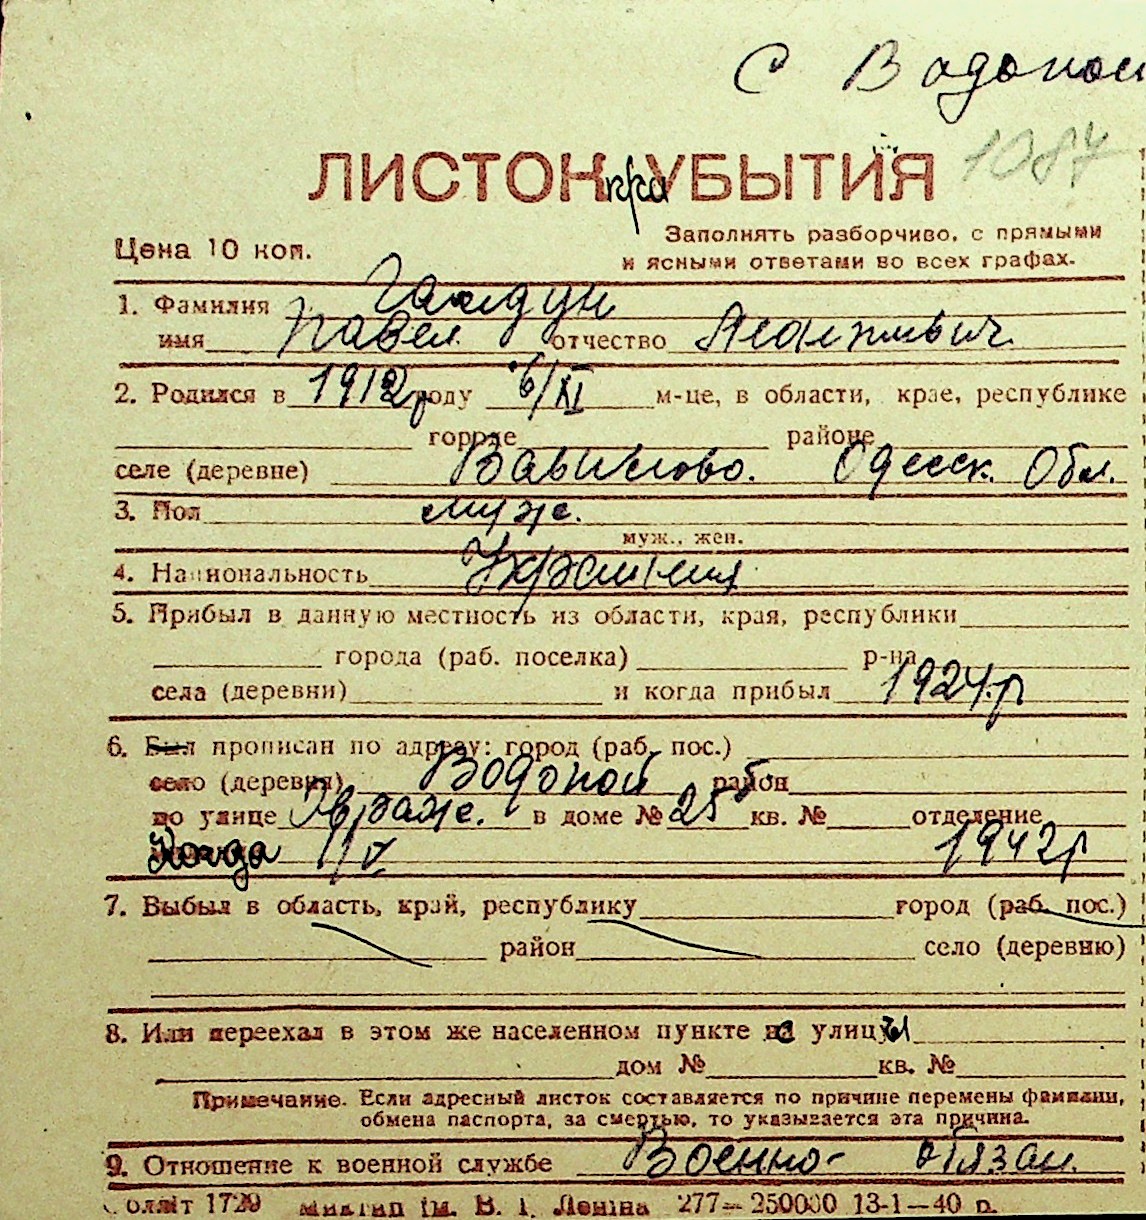 С Водопой
1087
ЛИСТОК при УБЫТИЯ
Цена 10 коп.
Заполнять разборчиво, с прямыми
и ясными ответами во всех графах.
1. Фамилия Гайдун
имя Павел отчество
2. Родился в 1912 году 6/XI м-це, в области, крае, республике
городе районе
селе (деревне) Вавилово. Одесск. Обл.
3. Пол муж.
муж., жен.
4. Национальность
5. Прибыл в данную местность из области, края, республики
города (раб. поселка) р-на
села (деревни) и когда прибыл 1924 р
6. Был прописан по адресу: город (раб. пос.)
село (деревня) Водопой район
по улице Овраж. в доме № 25 кв. № отделение
Когда 1/V 1942 р
7. Выбыл в область, край, республику город (раб. пос.)
район село (деревню)
8. Или переехал в этом же населенном пункте с улицы
дом № кв. №
Примечание. Если адресный листок составляется по причине перемены фамилии,
обмена паспорта, за смертью, то указывается эта причина.
9. Отношение к военной службе Военно-обязан.
1729 ім. В. І. Леніна 277—250000 13-1—40 р.